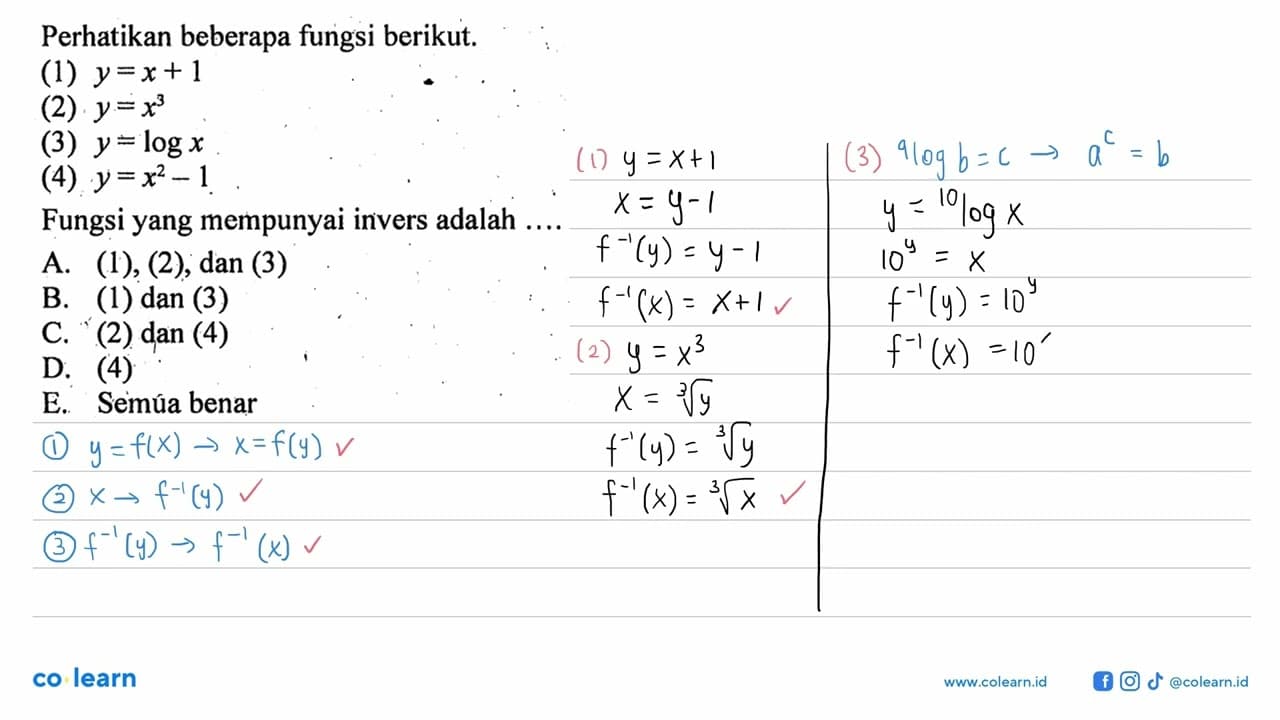 Perhatikan beberapa fungsi berikut.
(1) y = x + 1
(2) y = x³
(3) y = log x
(4) y = x² – 1
Fungsi yang mempunyai invers adalah ....
A. (1), (2), dan (3)
B. (1) dan (3)
C. (2) dan (4)
D. (4)
E. Semua benar
① y = f(x) → x = f(y) ✓
② x → f⁻¹(y) ✓
③ f⁻¹(y) → f⁻¹(x) ✓
(1) y = x+1
x = y-1
f⁻¹(y) = y-1
f⁻¹(x) = x+1 ✓
(2) y = x³
x = ³√y
f⁻¹(y) = ³√y
f⁻¹(x) = ³√x ✓
(3) ᵃlog b = c → aᶜ = b
y = ¹⁰log x
10ʸ = x
f⁻¹(y) = 10ʸ
f⁻¹(x) = 10
co learn
www.colearn.id
@colearn.id